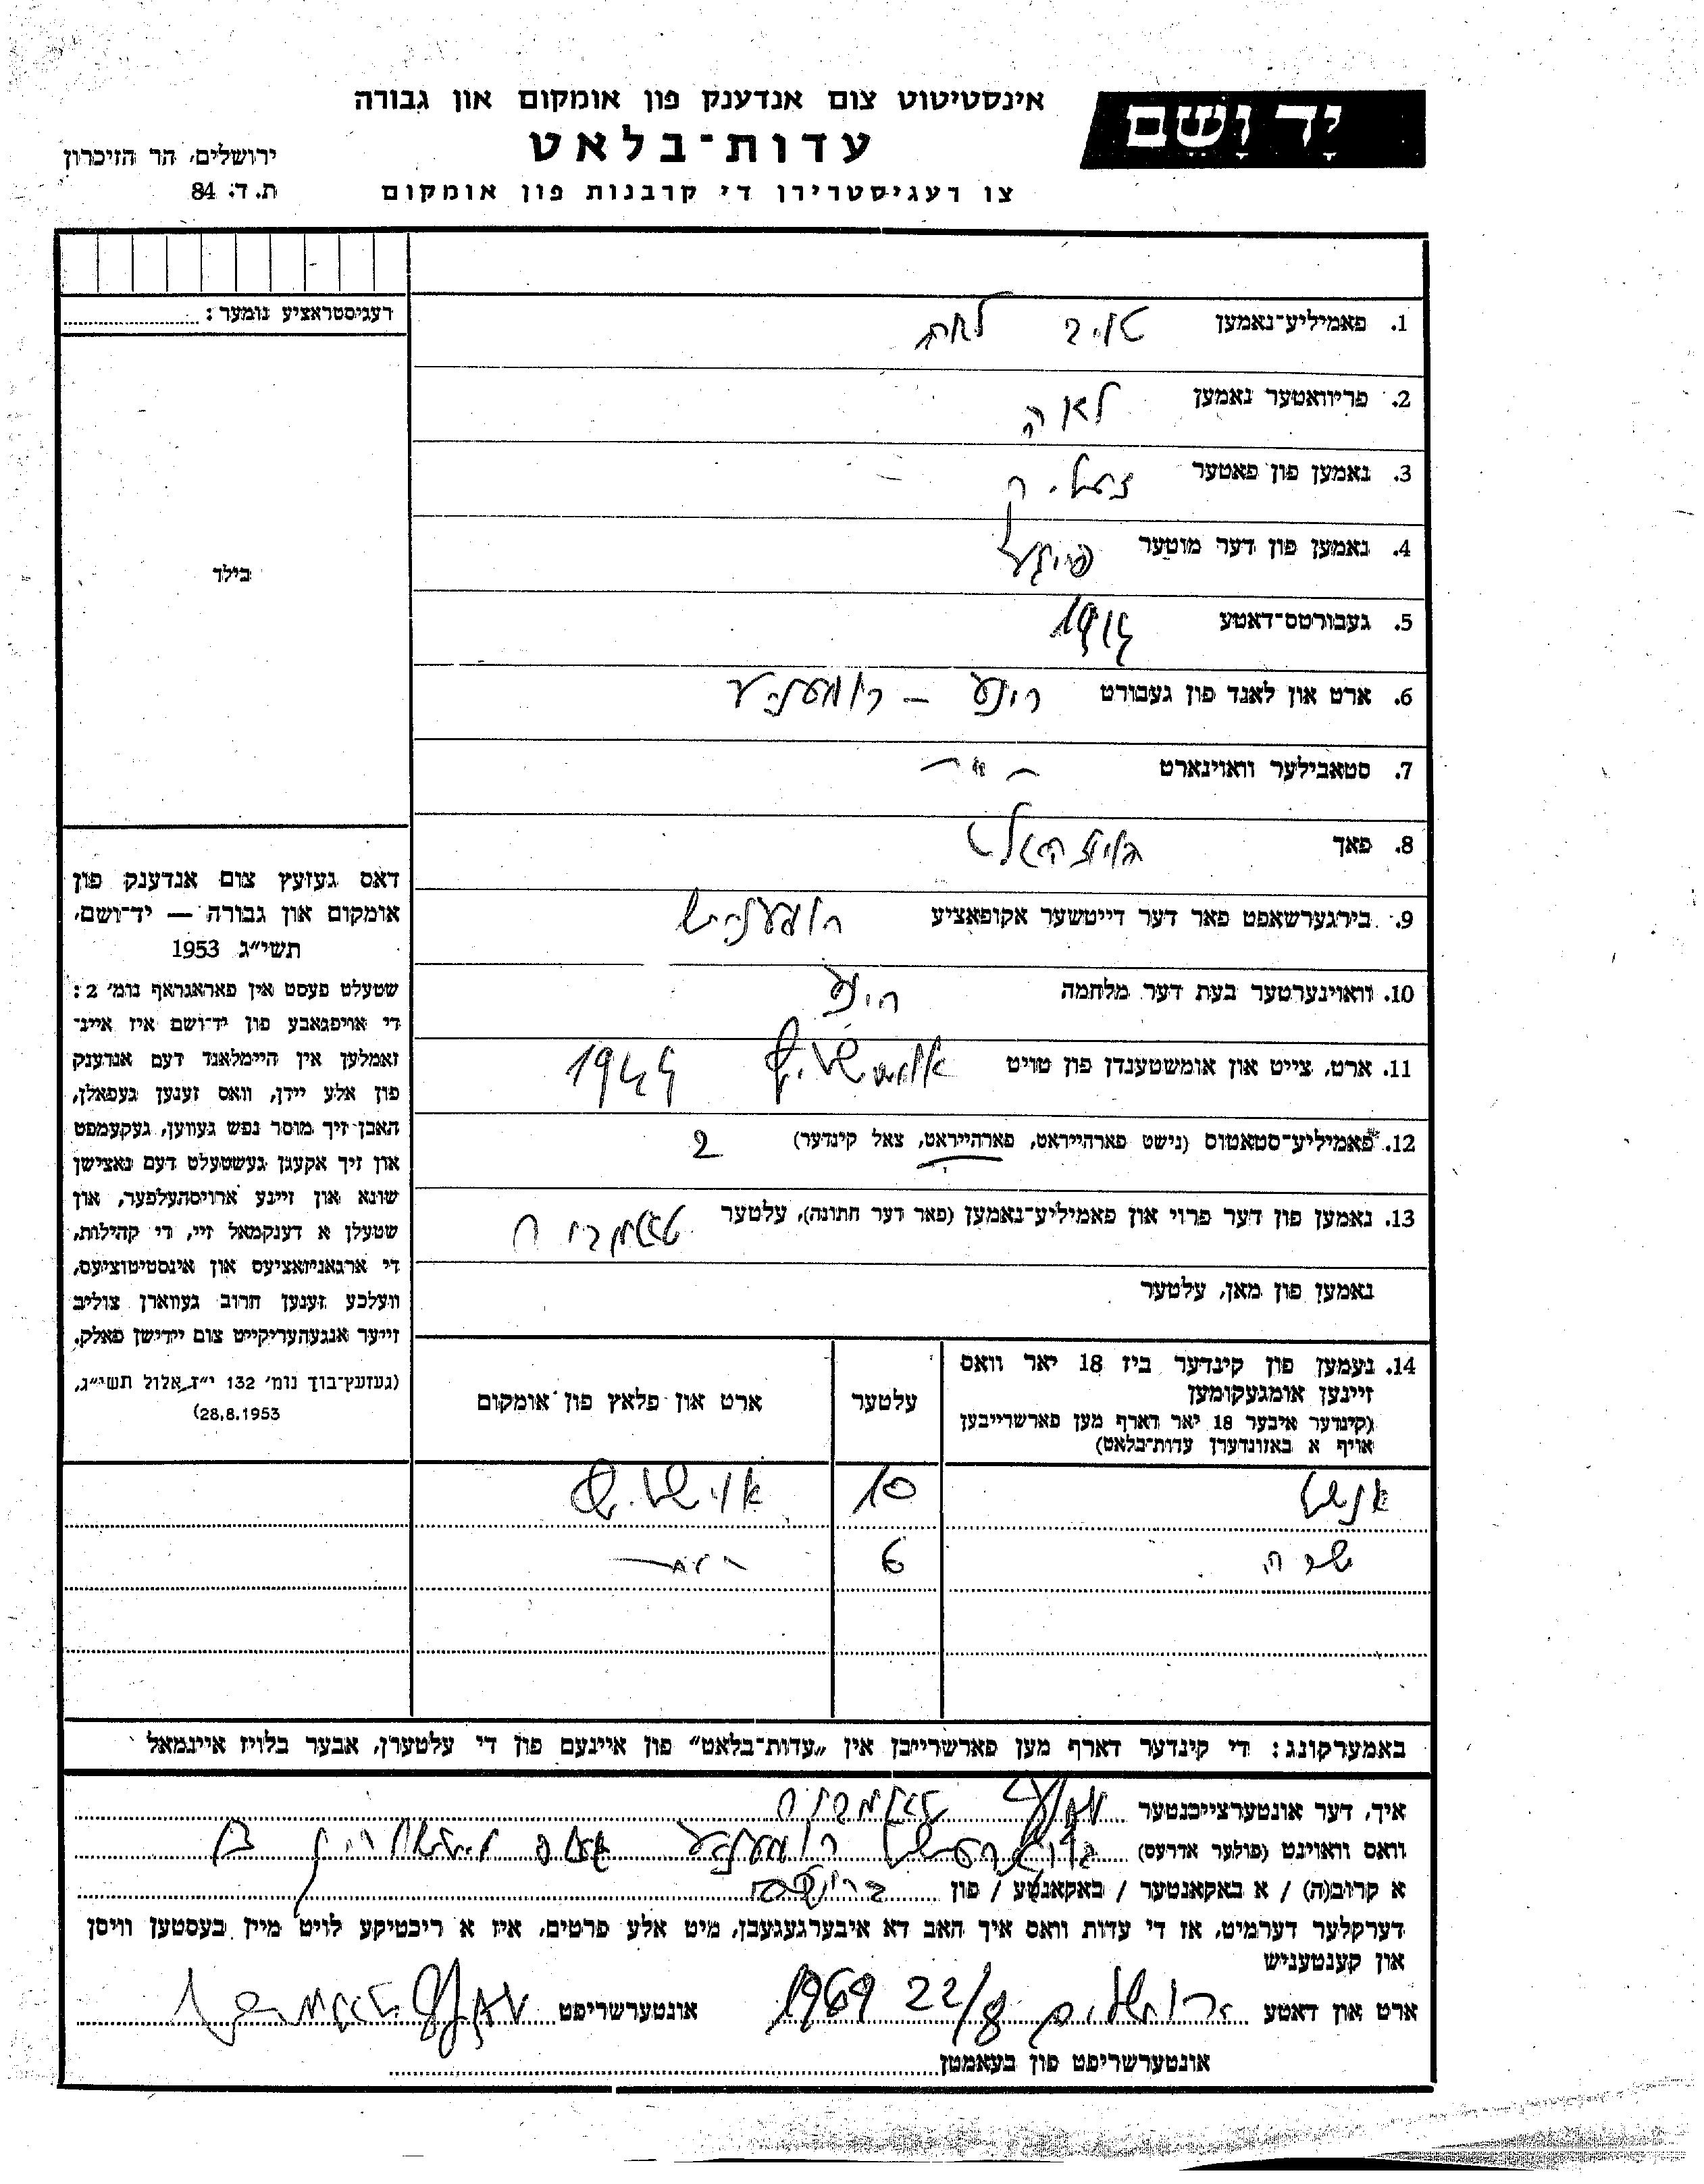 יָד וָשֵׁם
אינסטיטוט צום אנדענק פון אומקום און גבורה
עדות־בלאט
צו רעגיסטרירן די קרבנות פון אומקום
ירושלים, הר הזיכרון
ת. ד. 84
רעגיסטראציע נומער :
בילד
1. פאמיליע־נאמען טויב לאה
2. פריוואטער נאמען לאה
3. נאמען פון פאטער
4. נאמען פון דער מוטער פייגע
5. געבורטס־דאטע
6. ארט און לאנד פון געבורט רומעניע
7. סטאבילער וואוינארט - " -
8. פאך
9. בירגערשאפט פאר דער דייטשער אקופאציע רומעניש
10. וואוינערטער בעת דער מלחמה
11. ארט, צייט און אומשטענדן פון טויט אושוויץ 1944
12. פאמיליע־סטאטוס (נישט פארהייראט, פארהייראט, צאל קינדער) 2
13. נאמען פון דער פרוי און פאמיליע־נאמען (פאר דער חתונה), עלטער
נאמען פון מאן, עלטער
דאס געזעץ צום אנדענק פון
אומקום און גבורה — יד־ושם,
תשי״ג 1953
שטעלט פעסט אין פאראגראף נומ׳ 2 :
די אויפגאבע פון יד־ושם איז איינ־
זאמלען אין היימלאנד דעם אנדענק
פון אלע יידן, וואס זענען געפאלן,
האבן זיך מוסר נפש געווען, געקעמפט
און זיך אקעגן געשטעלט דעם נאצישן
שונא און זיינע ארויסהעלפער, און
שטעלן א דענקמאל זיי, די קהילות,
די ארגאניזאציעס און אינסטיטוציעס,
וועלכע זענען חרוב געווארן צוליב
זייער אנגעהעריקייט צום יידישן פאלק.
(געזעץ־בוך נומ׳ 132 י״ז אלול תשי״ג,
28.8.1953)
14. נעמען פון קינדער ביז 18 יאר וואס
זיינען אומגעקומען
(קינדער איבער 18 יאר דארף מען פארשרייבן
אויף א באזונדערן עדות־בלאט)
עלטער
ארט און פלאץ פון אומקום
10 אושוויץ
שרה 6 - " -
באמערקונג : די קינדער דארף מען פארשרייבן אין „עדות־בלאט״ פון איינעם פון די עלטערן, אבער בלויז איינמאל
איך, דער אונטערצייכנטער
וואס וואוינט (פולער אדרעס) רומעניע
א קרוב(ה) / א באקאנטער / באקאנטע / פון
דערקלער דערמיט, אז די עדות וואס איך האב דא איבערגעגעבן, מיט אלע פרטים, איז א ריכטיקע לויט מיין בעסטען וויסן
און קענטעניש
ארט און דאטע ירושלים 22/8 1969 אונטערשריפט
אונטערשריפט פון בעאמטן